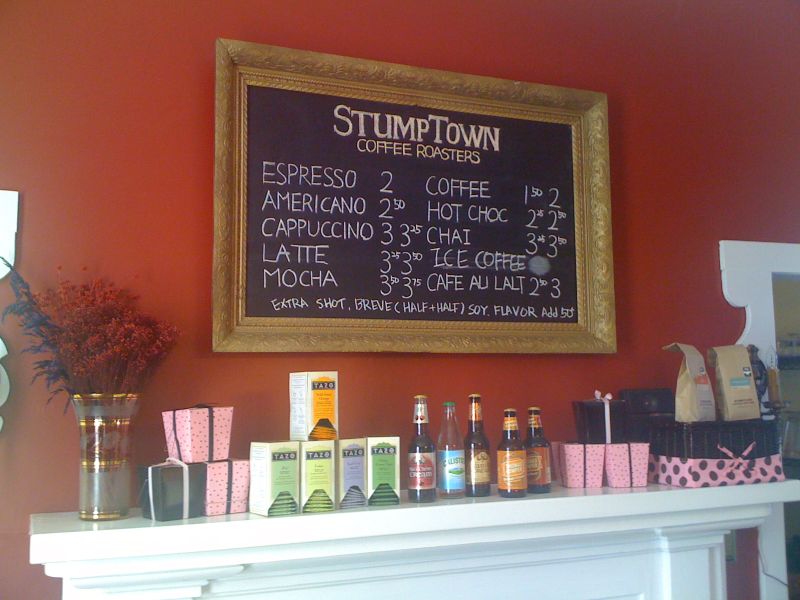 STUMPTOWN
COFFEE ROASTERS
ESPRESSO 2
AMERICANO 2 50
CAPPUCCINO 3 3 25
LATTE 3 25 3 50
MOCHA 3 50 3 75
COFFEE 1 50 2
HOT CHOC 2 25 2 50
CHAI 3 25 3 50
ICE COFFEE
CAFE AU LAIT 2 50 3
EXTRA SHOT, BREVE (HALF+HALF) SOY, FLAVOR Add 50¢
TAZO
TAZO
TAZO
TAZO
TAZO